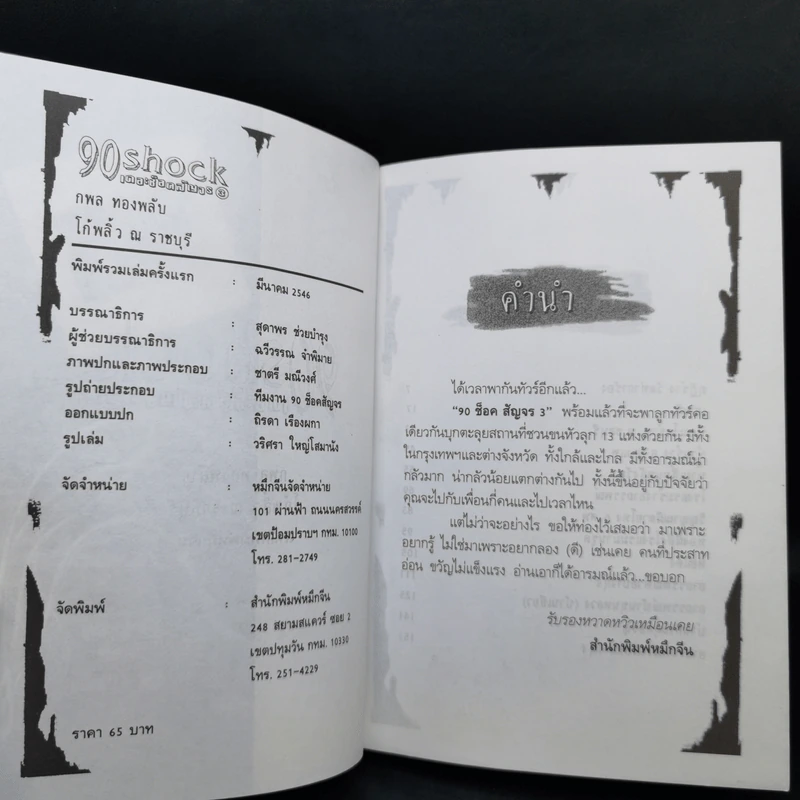 90 shock
เดอะช็อคสัญจร 3
กพล ทองพลับ
โก้พลิ้ว ณ ราชบุรี
พิมพ์รวมเล่มครั้งแรก : มีนาคม 2546
บรรณาธิการ : สุดาพร ช่วยบำรุง
ผู้ช่วยบรรณาธิการ : ฉวีวรรณ จำพิมาย
ภาพปกและภาพประกอบ : ชาตรี มณีวงศ์
รูปถ่ายประกอบ : ทีมงาน 90 ช็อคสัญจร
ออกแบบปก : ถิรดา เรืองผกา
รูปเล่ม : วริศรา ใหญ่โสมานัง
จัดจำหน่าย : หมึกจีนจัดจำหน่าย
101 ผ่านฟ้า ถนนนครสวรรค์
เขตป้อมปราบฯ กทม. 10100
โทร. 281-2749
จัดพิมพ์ : สำนักพิมพ์หมึกจีน
248 สยามสแควร์ ซอย 2
เขตปทุมวัน กทม. 10330
โทร. 251-4229
ราคา 65 บาท
คำนำ
ได้เวลาพากันทัวร์อีกแล้ว...
“90 ช็อค สัญจร 3” พร้อมแล้วที่จะพาลูกทัวร์คอ
เดียวกันบุกตะลุยสถานที่ชวนขนหัวลุก 13 แห่งด้วยกัน มีทั้ง
ในกรุงเทพฯและต่างจังหวัด ทั้งใกล้และไกล มีทั้งอารมณ์น่า
กลัวมาก น่ากลัวน้อยแตกต่างกันไป ทั้งนี้ขึ้นอยู่กับปัจจัยว่า
คุณจะไปกับเพื่อนกี่คนและไปเวลาไหน
แต่ไม่ว่าจะอย่างไร ขอให้ท่องไว้เสมอว่า มาเพราะ
อยากรู้ ไม่ใช่มาเพราะอยากลอง (ดี) เช่นเคย คนที่ประสาท
อ่อน ขวัญไม่แข็งแรง อ่านเอาก็ได้อารมณ์แล้ว...ขอบอก
รับรองหวาดหวิวเหมือนเคย
สำนักพิมพ์หมึกจีน